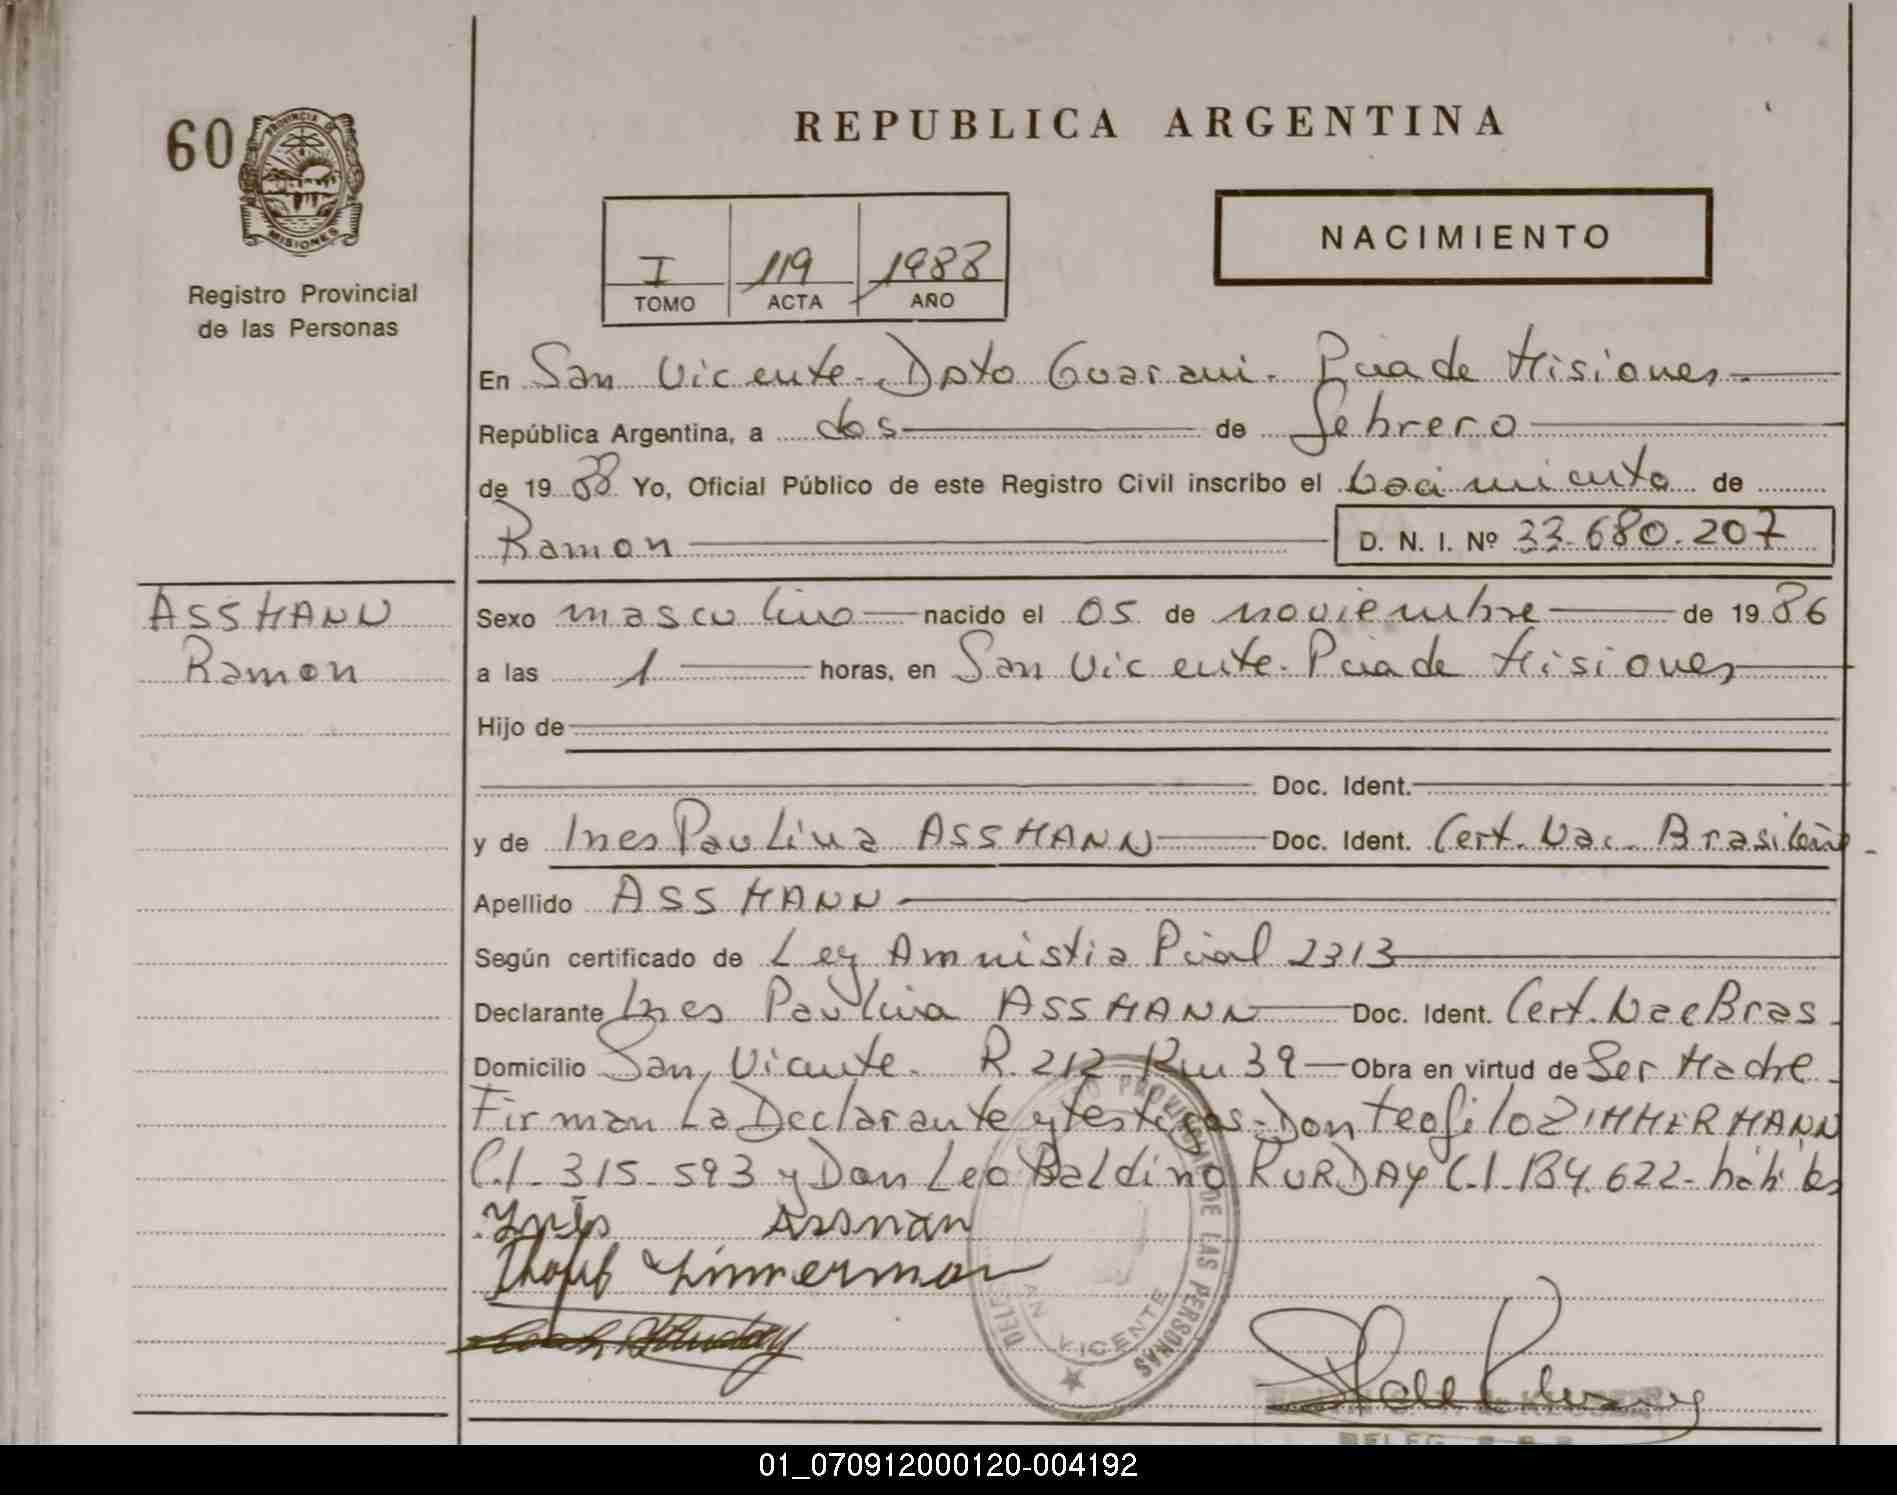 60
PROVINCIA DE
MISIONES
Registro Provincial
de las Personas
REPUBLICA ARGENTINA
I 119 1988
TOMO ACTA AÑO
NACIMIENTO
En San Vicente - Dpto Guarani - Pcia de Misiones
República Argentina, a dos de Febrero
de 1988 Yo, Oficial Público de este Registro Civil inscribo el Nacimiento de
Ramon D. N. I. Nº 33.680.207
ASSMANN
Ramon
Sexo masculino nacido el 05 de noviembre de 1986
a las 1 horas, en San Vicente - Pcia de Misiones
Hijo de
Doc. Ident.
y de Ines Paulina ASSMANN Doc. Ident. Cert. Nac. Brasileño
Apellido ASSMANN
Según certificado de Ley Amnistia Pcial 2313
Declarante Ines Paulina ASSMANN Doc. Ident. Cert. Nac Bras.
Domicilio San Vicente. R. 212 Km 39 Obra en virtud de Ser Madre
Firman La Declarante y testigos - Don Teofilo ZIMMERMANN
C.I. 315.593 y Don Leo Baldino KURDAY C.I. 134.622 - hábiles
Ynês Assman
Zimmerman
PROVINCIAL DE LAS PERSONAS
SAN VICENTE
01_070912000120-004192